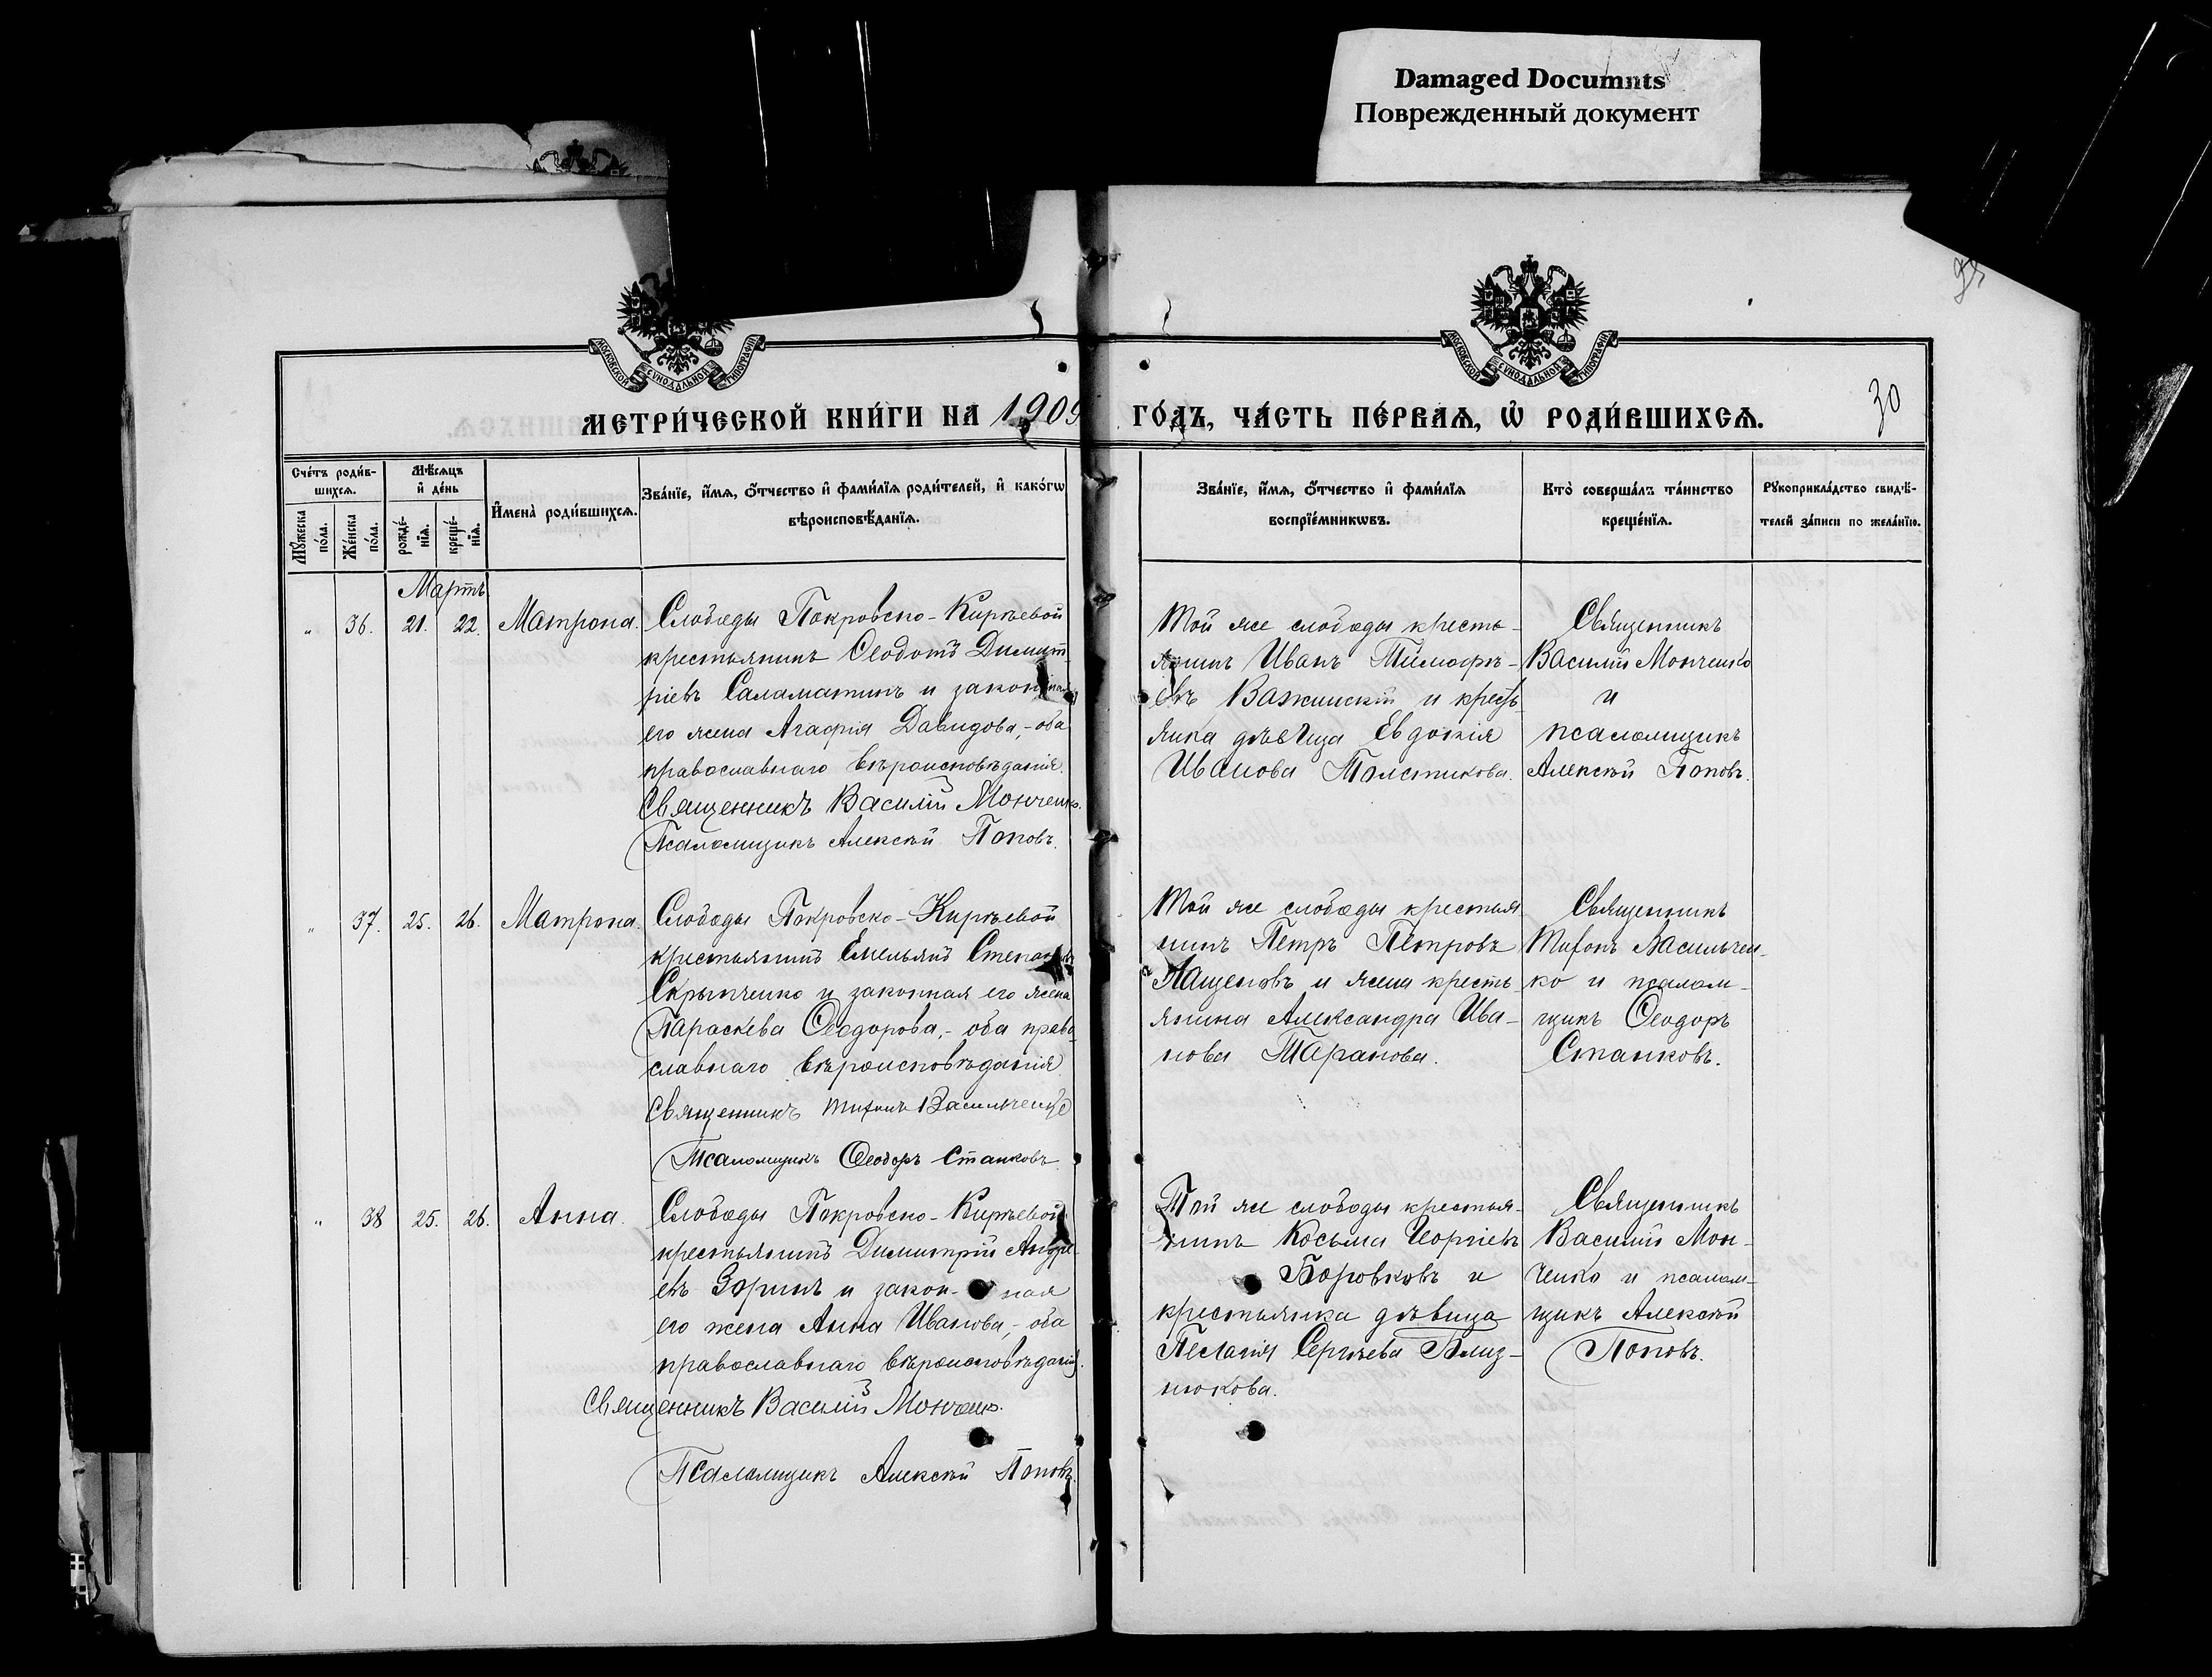 Damaged Documnts
Поврежденный документ
МОСКОВСКОЙ СѴНОДАЛЬНОЙ ТИПОГРАФІИ
МОСКОВСКОЙ СѴНОДАЛЬНОЙ ТИПОГРАФІИ
МЕТРИ́ЧЕСКОЙ КНИ́ГИ НА 1909
ГО́ДЪ, ЧА́СТЬ ПЕ́РВАѦ, Ѡ҆ РОДИ́ВШИХСѦ.
30
Сче́тъ роди́в-
шихсѧ.
Мѣ́сѧцъ
и҆ де́нь
Мꙋ́жеска по́ла.
Же́нска по́ла.
рожде́-нїѧ.
креще́-нїѧ.
И҆мена̀ роди́вшихсѧ.
Зва́нїе, и҆́мѧ, ѻ҆́тчество и҆ фами́лїѧ роди́телей, и҆ како́гѡ
вѣроисповѣ́данїѧ.
Зва́нїе, и҆́мѧ, ѻ҆́тчество и҆ фами́лїѧ
воспрїе́мникѡвъ.
Кто̀ соверша́лъ та́инство
креще́нїѧ.
Рꙋкоприкла́дство свидѣ́-
телей за́писи по жела́нїю.
Мартъ
" 36. 21. 22. Матрона.
Слободы Покровско-Кирѣевой
крестьянинъ Ѳеодотъ Димит-
ріевъ Саламатинъ и законная
его жена Агафія Давидова,-оба
православнаго вѣроисповѣданія.
Священникъ Василій Монченко.
Псаломщикъ Алексѣй Поповъ.
Той же слободы кресть-
янинъ Иванъ Тимофѣ-
евъ Важинскій и кресть-
янка дѣвица Евдокія
Иванова Толстикова.
Священникъ
Василій Монченко
и
псаломщикъ
Алексѣй Поповъ.
" 37. 25. 26. Матрона.
Слободы Покровско-Кирѣевой
крестьянинъ Емельянъ Степановъ
Скрынченко и законная его жена
Параскева Ѳеодорова,- оба право-
славнаго вѣроисповѣданія
Священникъ Тихонъ Васильченко
Псаломщикъ Ѳеодоръ Станковъ.
Той же слободы крестья
нинъ Петръ Петровъ
Пащенковъ и жена кресть-
янина Александра Ива-
нова Таранова.
Священникъ
Тихонъ Васильчен-
ко и псалом-
щикъ Ѳеодоръ
Станковъ.
" 38 25. 26. Анна.
Слободы Покровско-Кирѣевой
крестьянинъ Димитрій Андре-
евъ Зоринъ и закон-ная
его жена Анна Иванова,- оба
православнаго вѣроисповѣданія.
Священникъ Василій Мончено.
Псаломщикъ Алексѣй Поповъ.
Той же слободы крестья-
нинъ Косьма Георгіевъ
Боровковъ и
крестьянка дѣвица
Пелагія Сергѣева Близ-
нюкова.
Священникъ
Василій Мон-
ченко и псалом-
щикъ Алексѣй
Поповъ.